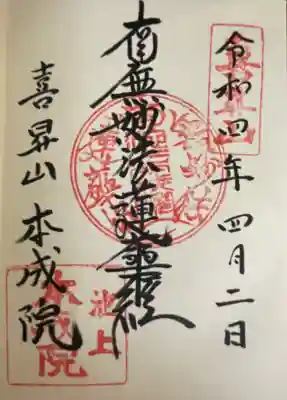 令和四年四月二日
南無妙法蓮華経
喜昇山 本成院
喜昇山
池上
本成院